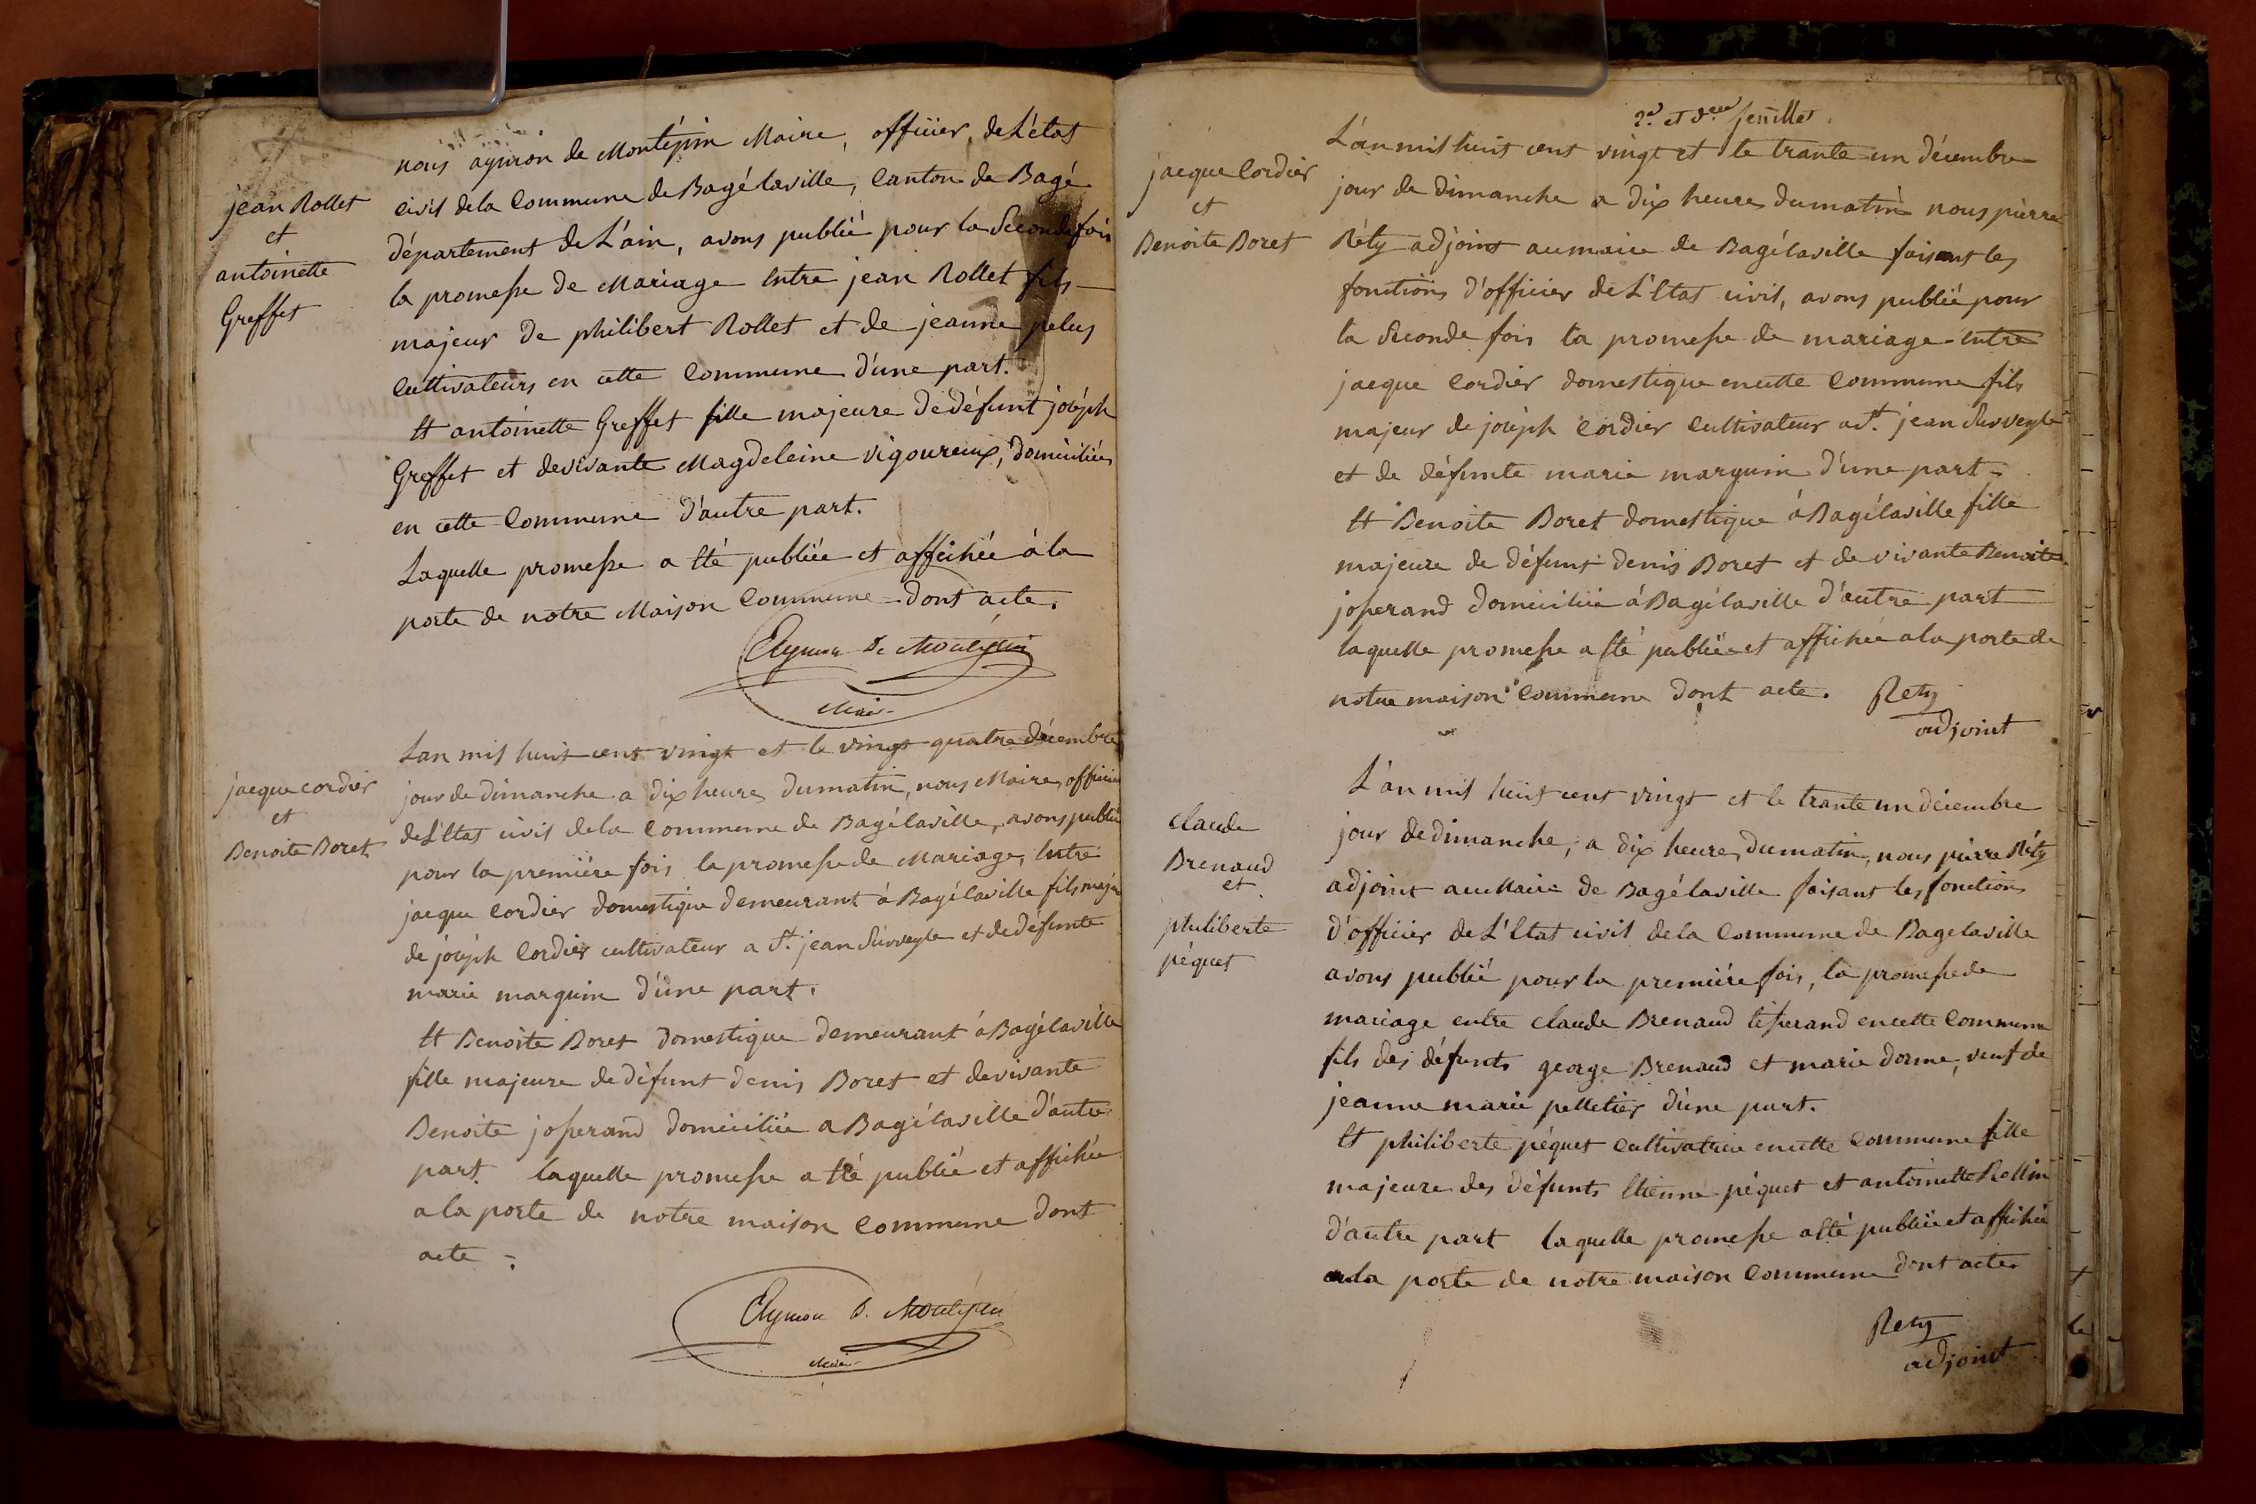 jean Rollet
et
antoinette
Greffet
nous aymon de Montépin Maire, officier, de L'état
civil dela Commune de Bagélaville, Canton de Bagé
département de L'ain, avons publié pour la Seconde fois
la promesse de Mariage Entre jean Rollet fils
majeur de philibert Rollet et de jeanne pelus
Cultivateurs en cette Commune d'une part.
Et antoinette Greffet fille majeure de défunt joséph
Greffet et devivante Magdeleine vigoureux, domiciliées
en cette Commune d'autre part.
Laquelle promesse a Eté publiée et affichée à la
porte de notre Maison Commune dont acte.
Aymon De Montépin
Maire
jacque cordier
et
Benoite Boret
Lan mil huit cent vingt et le vingt quatre décembre
jour de dimanche a dix heures dumatin, nous Maire, officier
de L'Etat civil dela Commune de Bagélaville, avons publié
pour la premiére fois la promesse de Mariage, Entre
jacque Cordier domestique demeurant à Bagélaville fils majeur
de joséph Cordier cultivateur a St. jean Surveyle et de défunte
marie marguin d'une part.
Et Benoite Boret domestique demeurant à Bagélaville
fille majeure de défunt denis Boret et devivante
Benoite josserand domiciliée a Bagélaville d'autre
part. laquelle promesse a Eté publié et affichée
a la porte de notre maison Commune dont
acte.
Aymon D. Montépin
Maire
2e. et dere. feuilles
jacque Cordier
et
Benoite Boret
L'an mil huit cent vingt et le trante un décembre
jour de dimanche a dix heures dumatin nous pierre
Réty adjoint aumaire de Bagélaville faisant les
fonctions d'officier de L'Etat civil, avons publié pour
la Seconde fois la promesse de mariage Entre
jacque Cordier domestique encette Commune fils
majeur de joséph Cordier Cultivateur a St. jean Surveyle
et de défunte marie marguin d'une part.
Et Benoite Boret domestique à Bagélaville fille
majeure de défunt denis Boret et de vivante Benoite
josserand domiciliée à Bagélaville d'autre part
laquelle promesse a Eté publiée et affichée a la porte de
notre maison Commune dont acte. Rety
adjoint
claude
Brenaud
et
philiberte
péquet
L'an mil huit cent vingt et le trante un décembre
jour dedimanche, a dix heures dumatin, nous pierre Réty
adjoint au Maire de Bagélaville faisant les fonctions
d'officier de L'Etat civil dela Commune de Bagelaville
avons publié pour la premiére fois, la promesse de
mariage entre claude Brenaud tisserand encette Commune
fils des défunts george Brenaud et marie dorme, veuf de
jeanne marie pelletier d'une part.
Et philiberte péquet Cultivatrice encette Commune fille
majeure des défunts Etienne péquet et antoinette Rollin
d'autre part laquelle promesse a Eté publiée et affichée
a la porte de notre maison Commune dont acte
Rety
adjoint